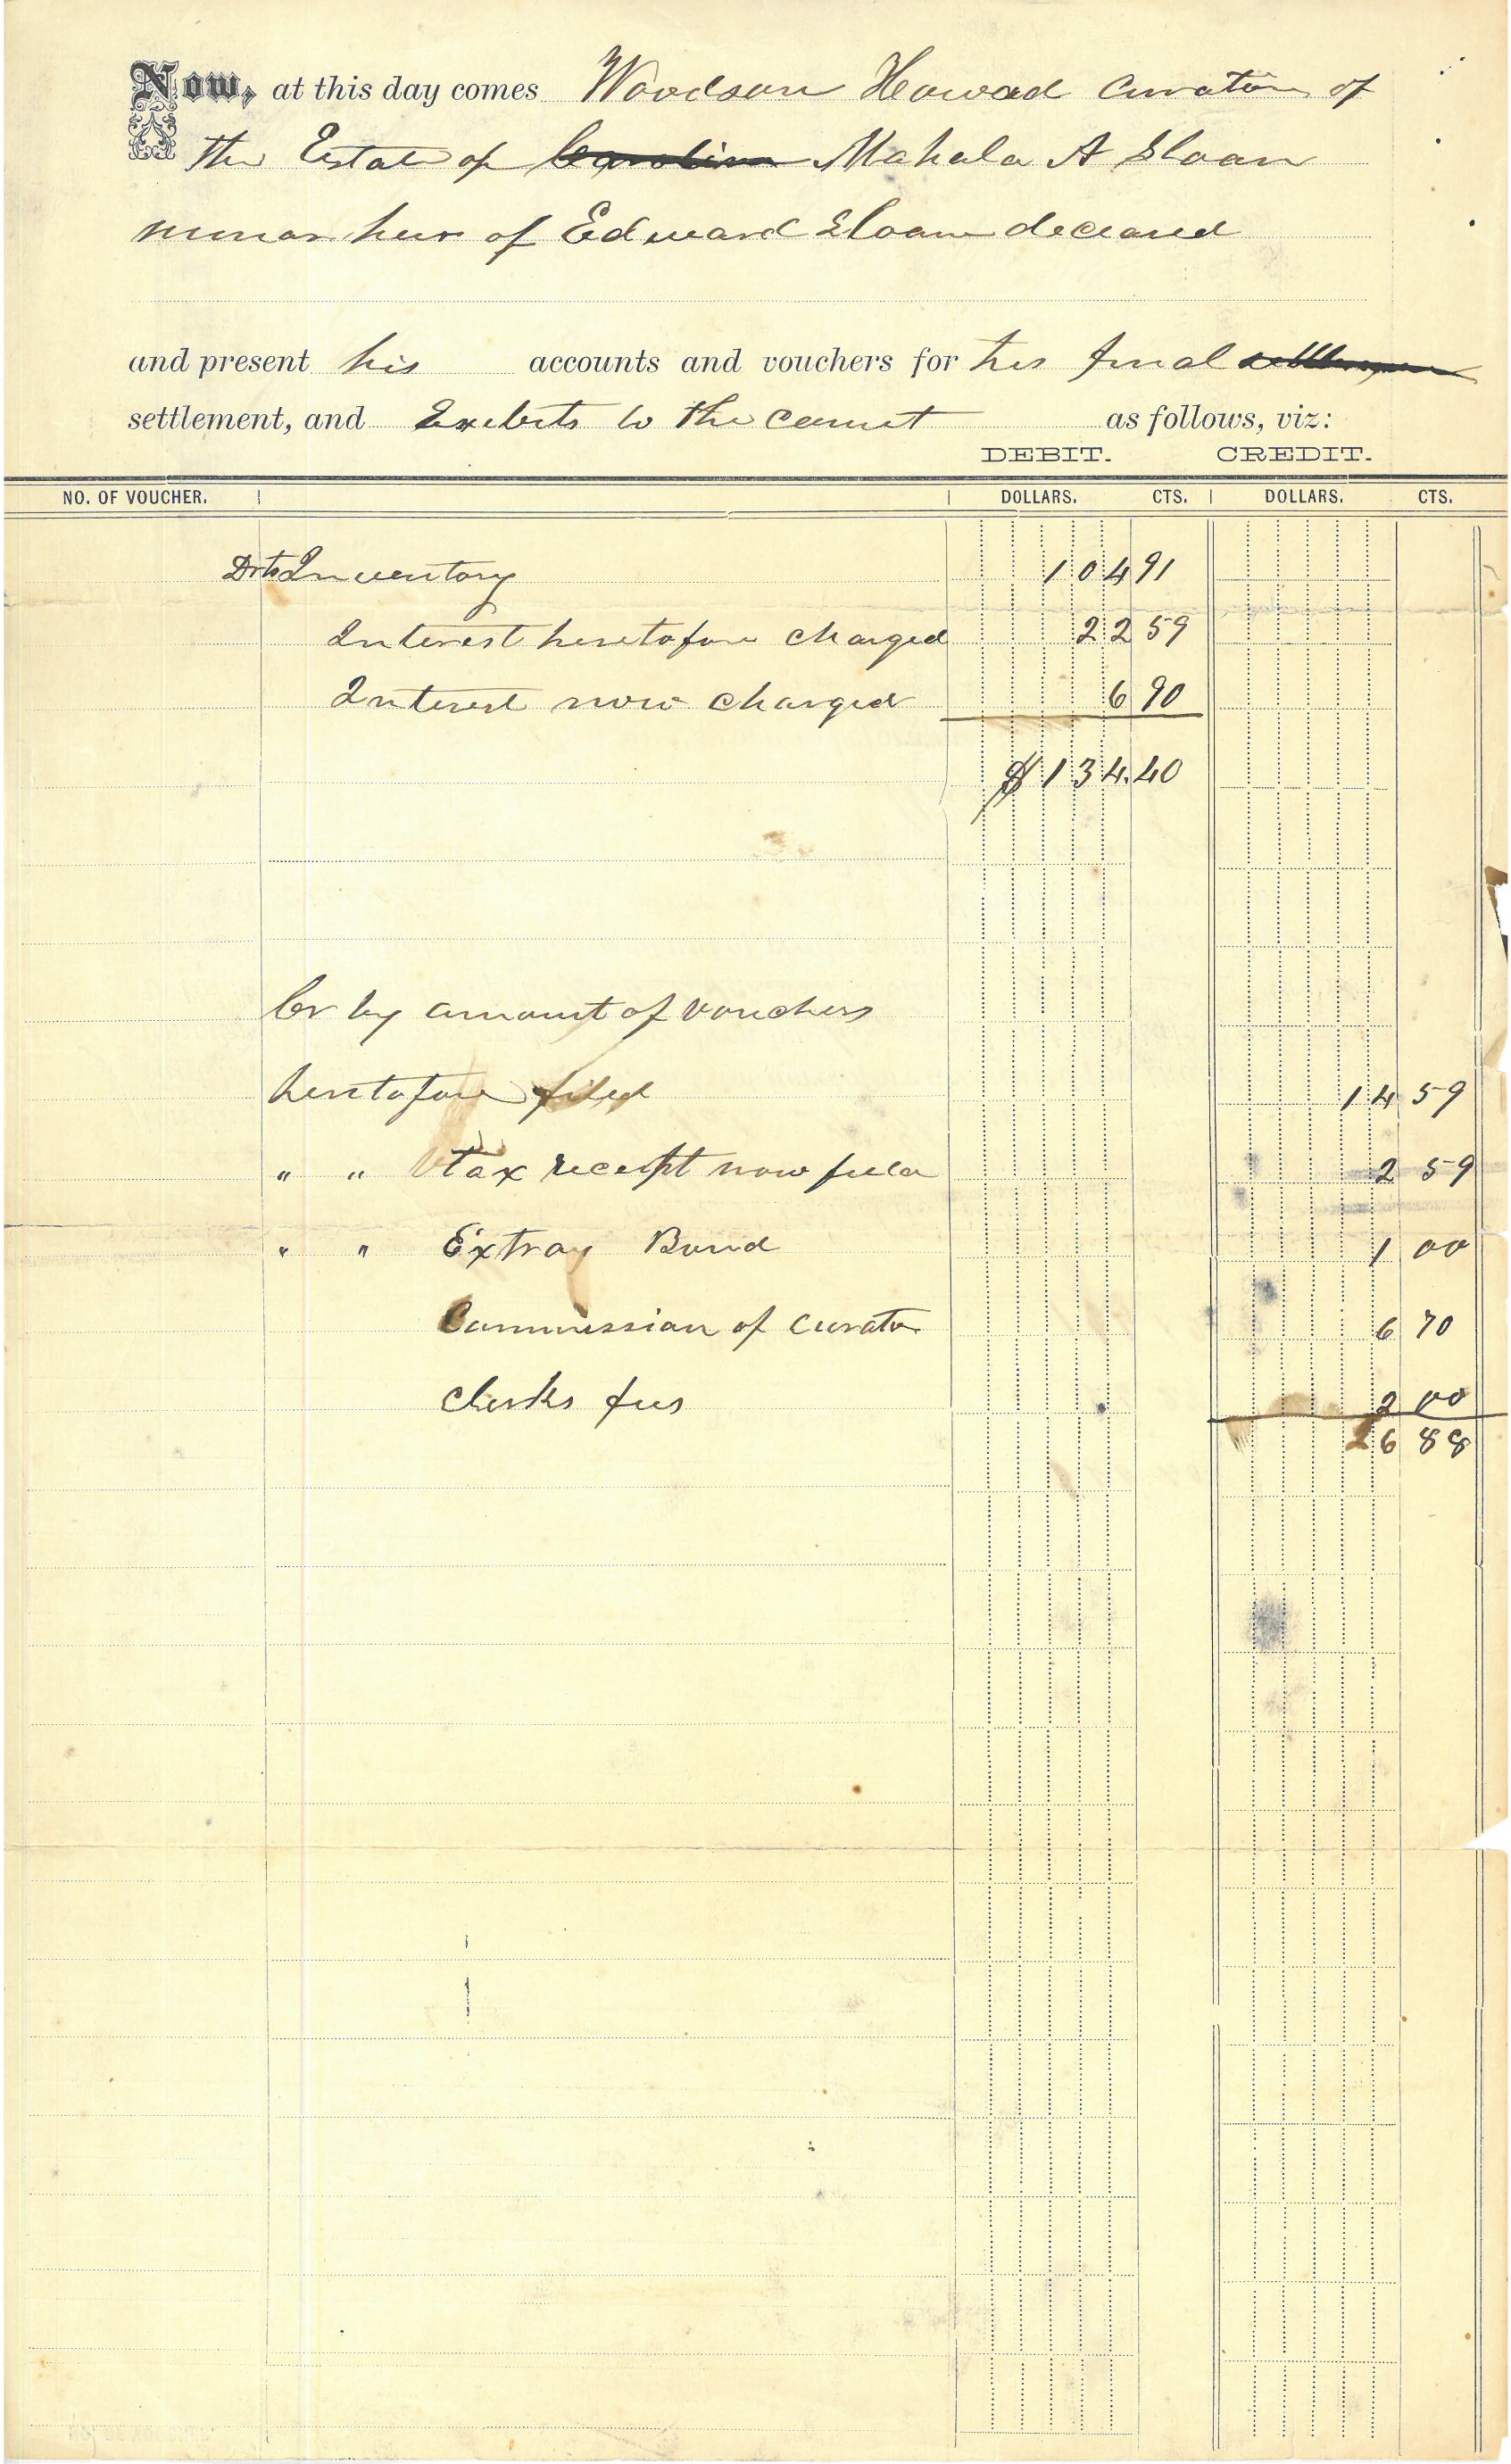 Now, at this day comes Woodson Howard Curator of
the Estate of Carolina Mahala A Sloan
minor heir of Edward Sloan deceased
and present his accounts and vouchers for his final settlement
settlement, and Exebits to the court as follows, viz:
DEBIT. CREDIT.
NO. OF VOUCHER. DOLLARS. CTS. DOLLARS. CTS.
Dr to Inventory 104 91
Interest heretofore charged 22 59
Interest now charged 6 90
$134.40
Cr by amount of vouchers
heretofore filed 14 59
" " tax receipt now filed 2 59
" " Extray Bond 1 00
Commission of Curator 6 70
Clerks fees 2 00
26 88